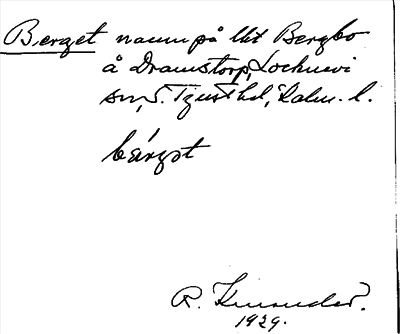 Berget namn på lht Bergbo
å Dramstorp, Locknevi
sn, S. Tjust hd, Kalm. l.
bärgət
R. Kinander.
1929.